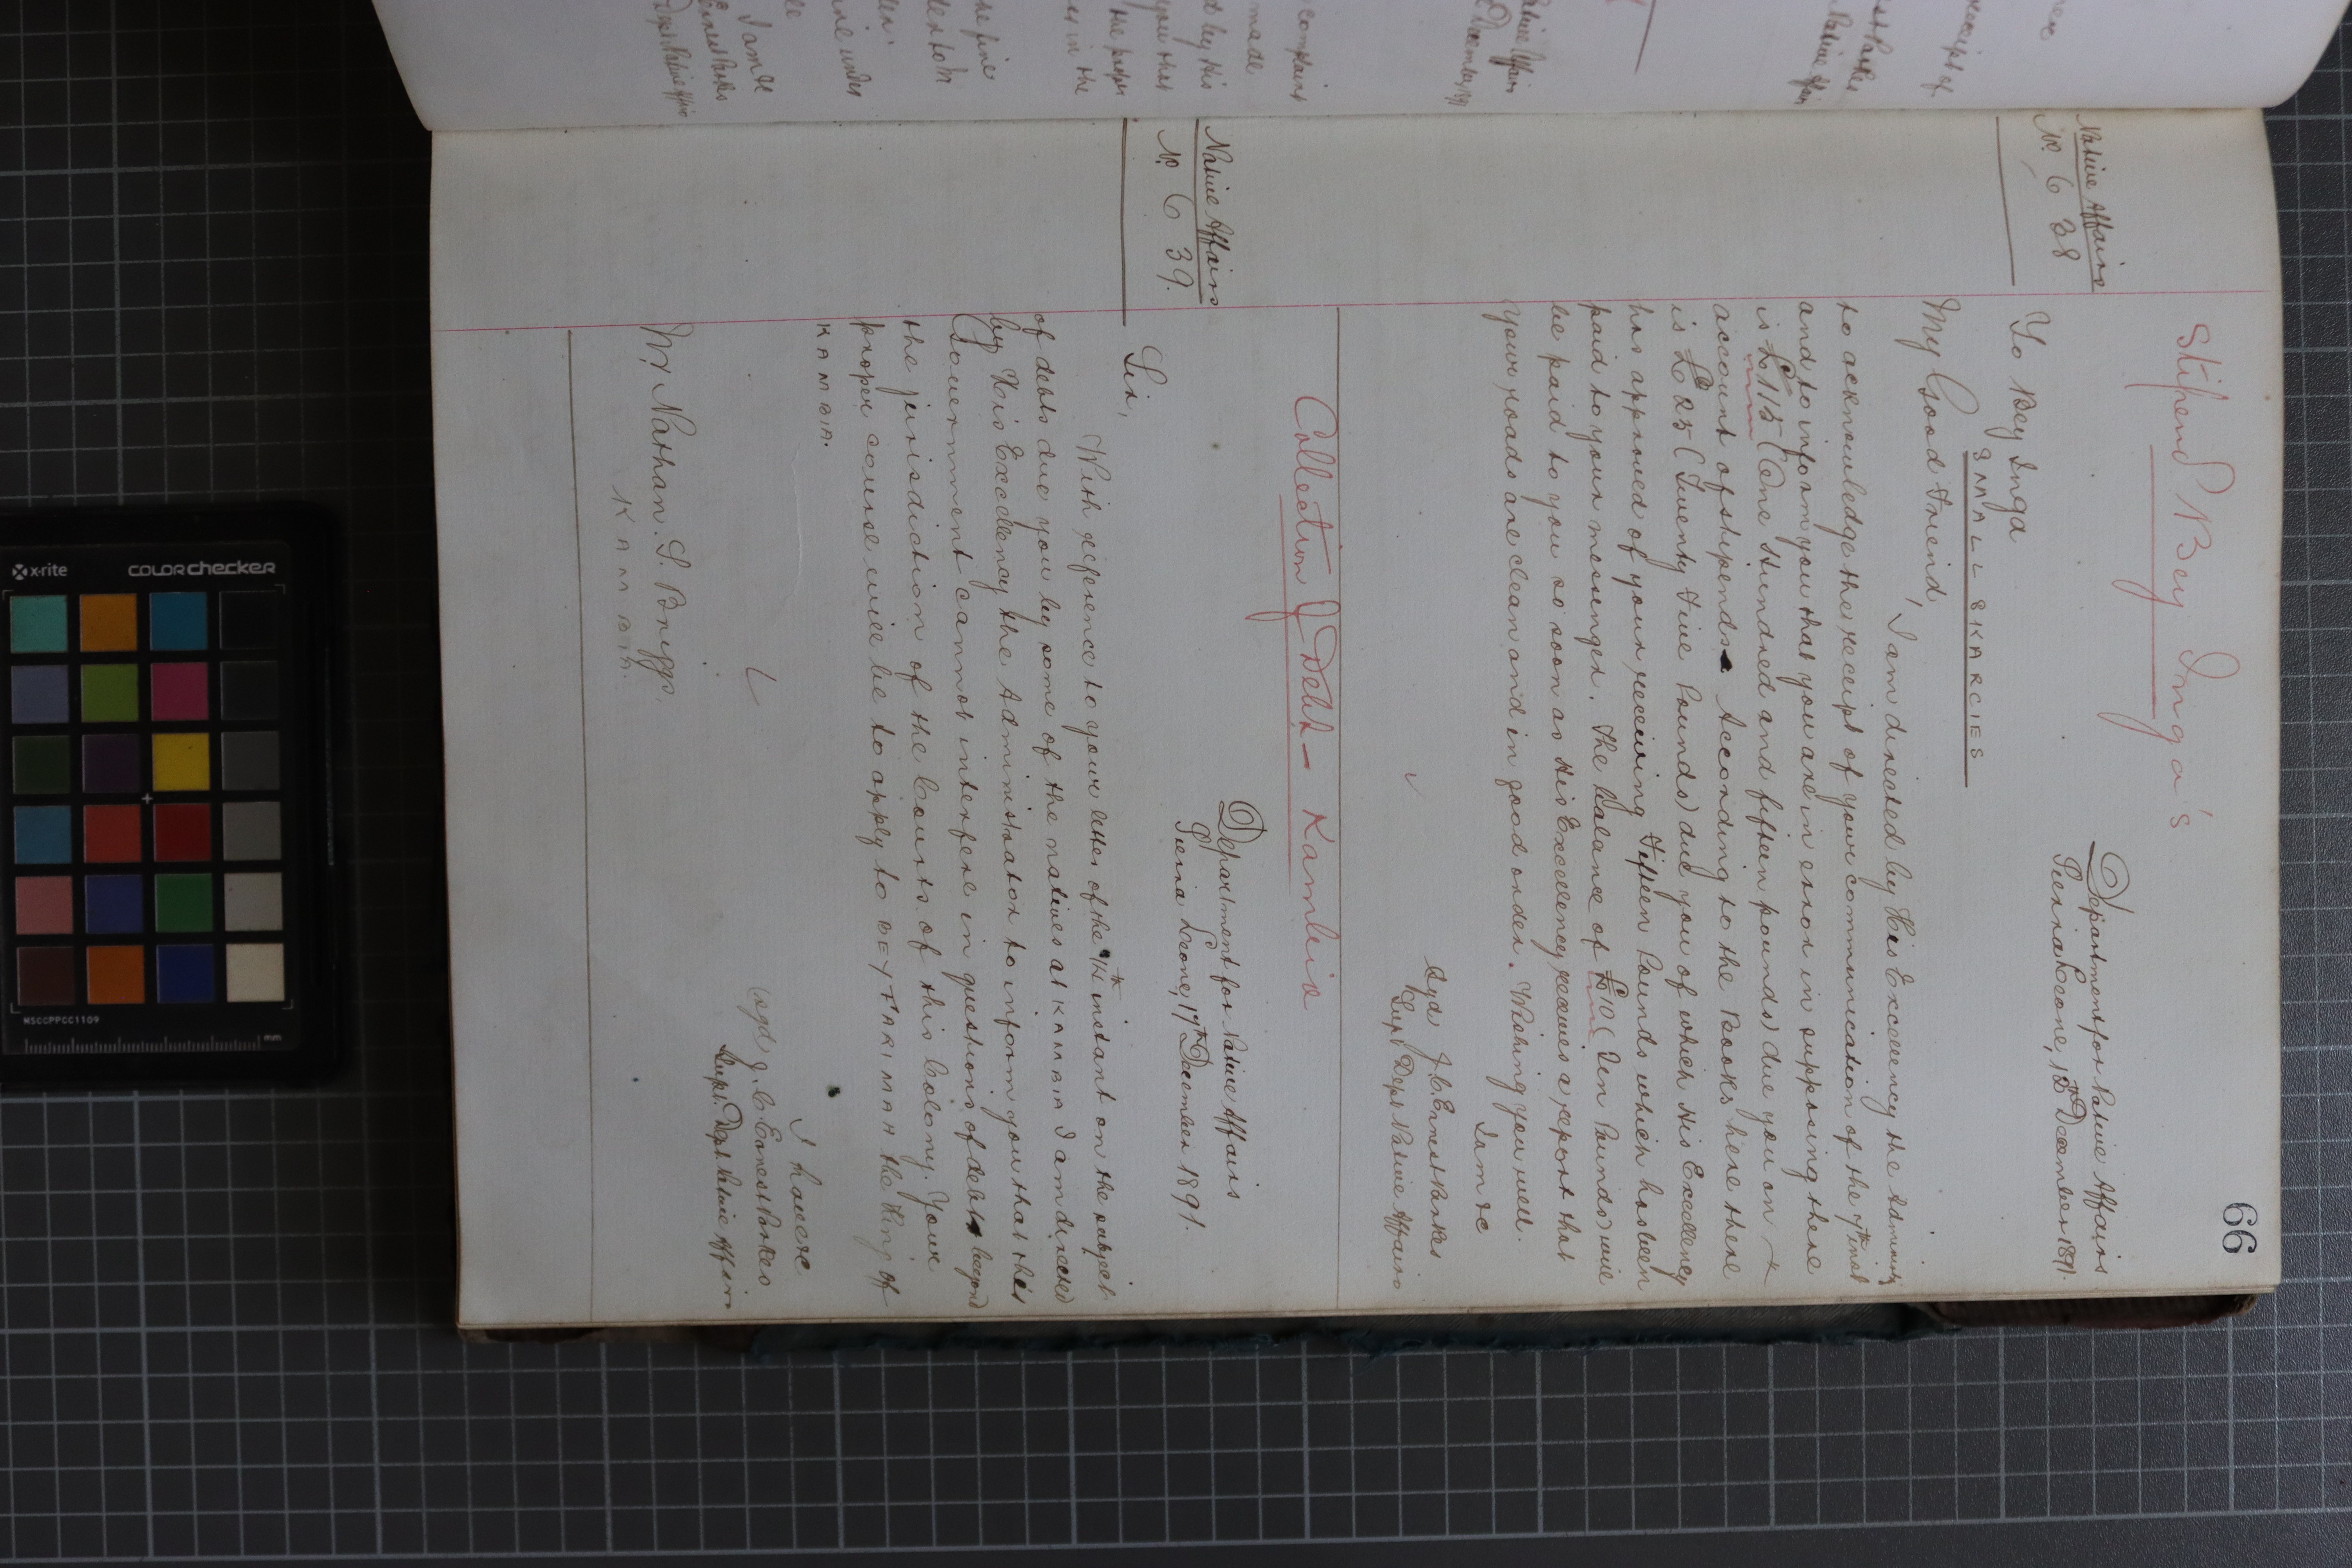 66
Stipend Bey Inga's
Native Affairs
No. 638
Department for Native Affairs
Sierra Leone, 18th December 1891.
To Bey Inga
SMALL SKARCIES
My Good Friend,
I am directed by His Excellency the
to acknowledge the receipt of your communication of the 7th inst
and to inform you that you are in error in supposing there
is £115 (One Hundred and fifteen pounds) due you on
account of stipends. According to the Books here there
is £25 (Twenty Five Pounds) due you of which His Excellency
has approved of your receiving Fifteen Pounds which has been
paid to your messenger. The balance of £10 (Ten Pounds) will
be paid to you so soon as His Excellency receives a report that
your roads are clean and in good order. Wishing you well.
I am &c
Sgd J. C. Ernest Parkes
Supt Dept Native Affairs
Collection of Debts - Kambia
Native Affairs
No. 639.
Department for Native Affairs
Sierra Leone, 17th December 1891.
Sir,
With reference to your letter of the instant on the subject
of debts due you by some of the natives at KAMBIA I am directed
by His Excellency the Administrator to inform you that this
Government cannot interfere in questions of debts beyond
the jurisdiction of the Courts of this Colony. Your
proper course will be to apply to BEY FARIMAH the King of
KAMBIA.
I have &c
(sgd) J. C. Ernest Parkes
Supt. Dept Native Affairs
Mr Nathan. S. Briggs.
KAMBIA.
x-rite
colorchecker
MSCCPPCC1109
mm